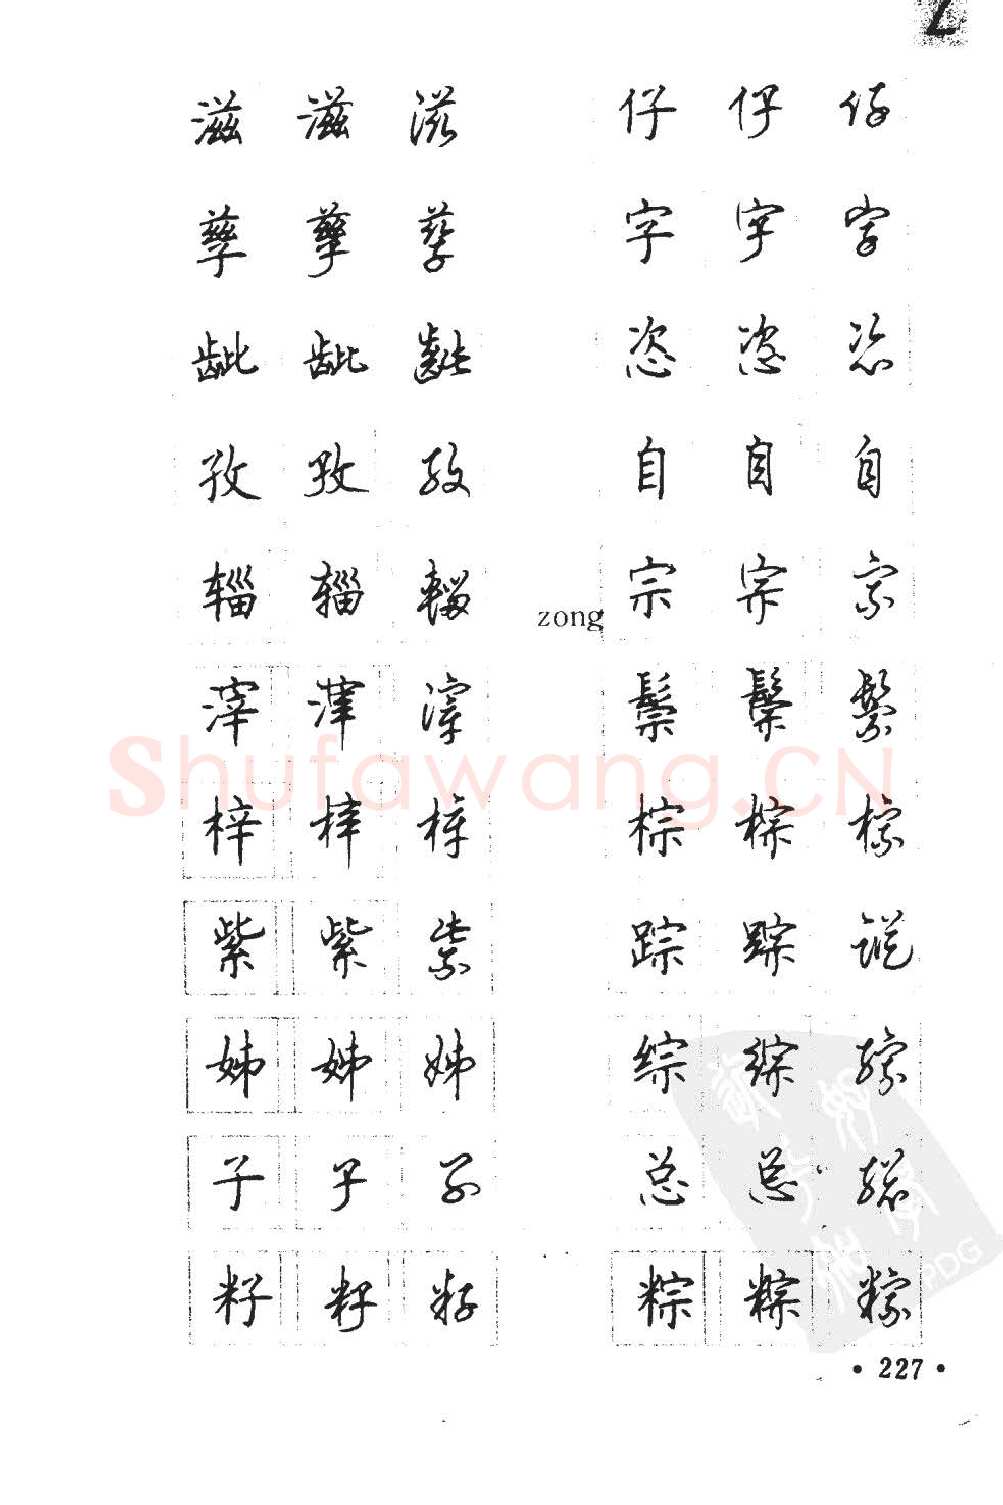 Z
滋 滋 滋 仔 仔 仔
孳 孳 孳 字 字 字
龇 龇 龇 恣 恣 恣
孜 孜 孜 自 自 自
辎 辎 輜 zong 宗 宗 宗
滓 滓 滓 鬃 鬃 鬃
Shufawang.CN
梓 梓 梓 棕 棕 棕
紫 紫 紫 踪 踪 蹤
姊 姊 姊 综 综 綜
子 子 子 总 总 總
籽 籽 籽 粽 粽 粽
PDG
• 227 •